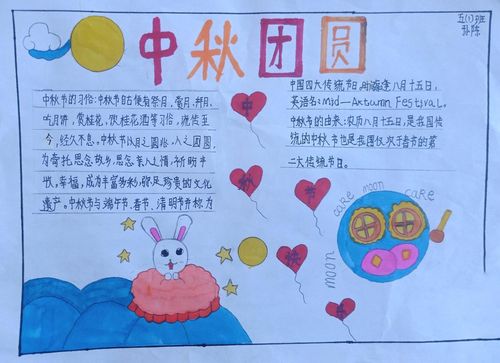 中秋团圆
五(1)班
中秋节的习俗:中秋节自古便有祭月、赏月、拜月、
吃月饼、赏桂花、饮桂花酒等习俗,流传至
今,经久不息。中秋节以月之圆兆人之团圆,
为寄托思念故乡,思念亲人之情,祈盼丰
收、幸福,成为丰富多彩、弥足珍贵的文化
遗产。中秋节与端午节、春节、清明节并称为
中国四大传统节日。时逢八月十五日,
英语名:Mid—Autumn Festival.
中秋节的由来:农历八月十五日,是我国传
统的中秋节也是我国仅次于春节的第
二大传统节日。
中
秋
节
快
乐
cake moon cake
moon